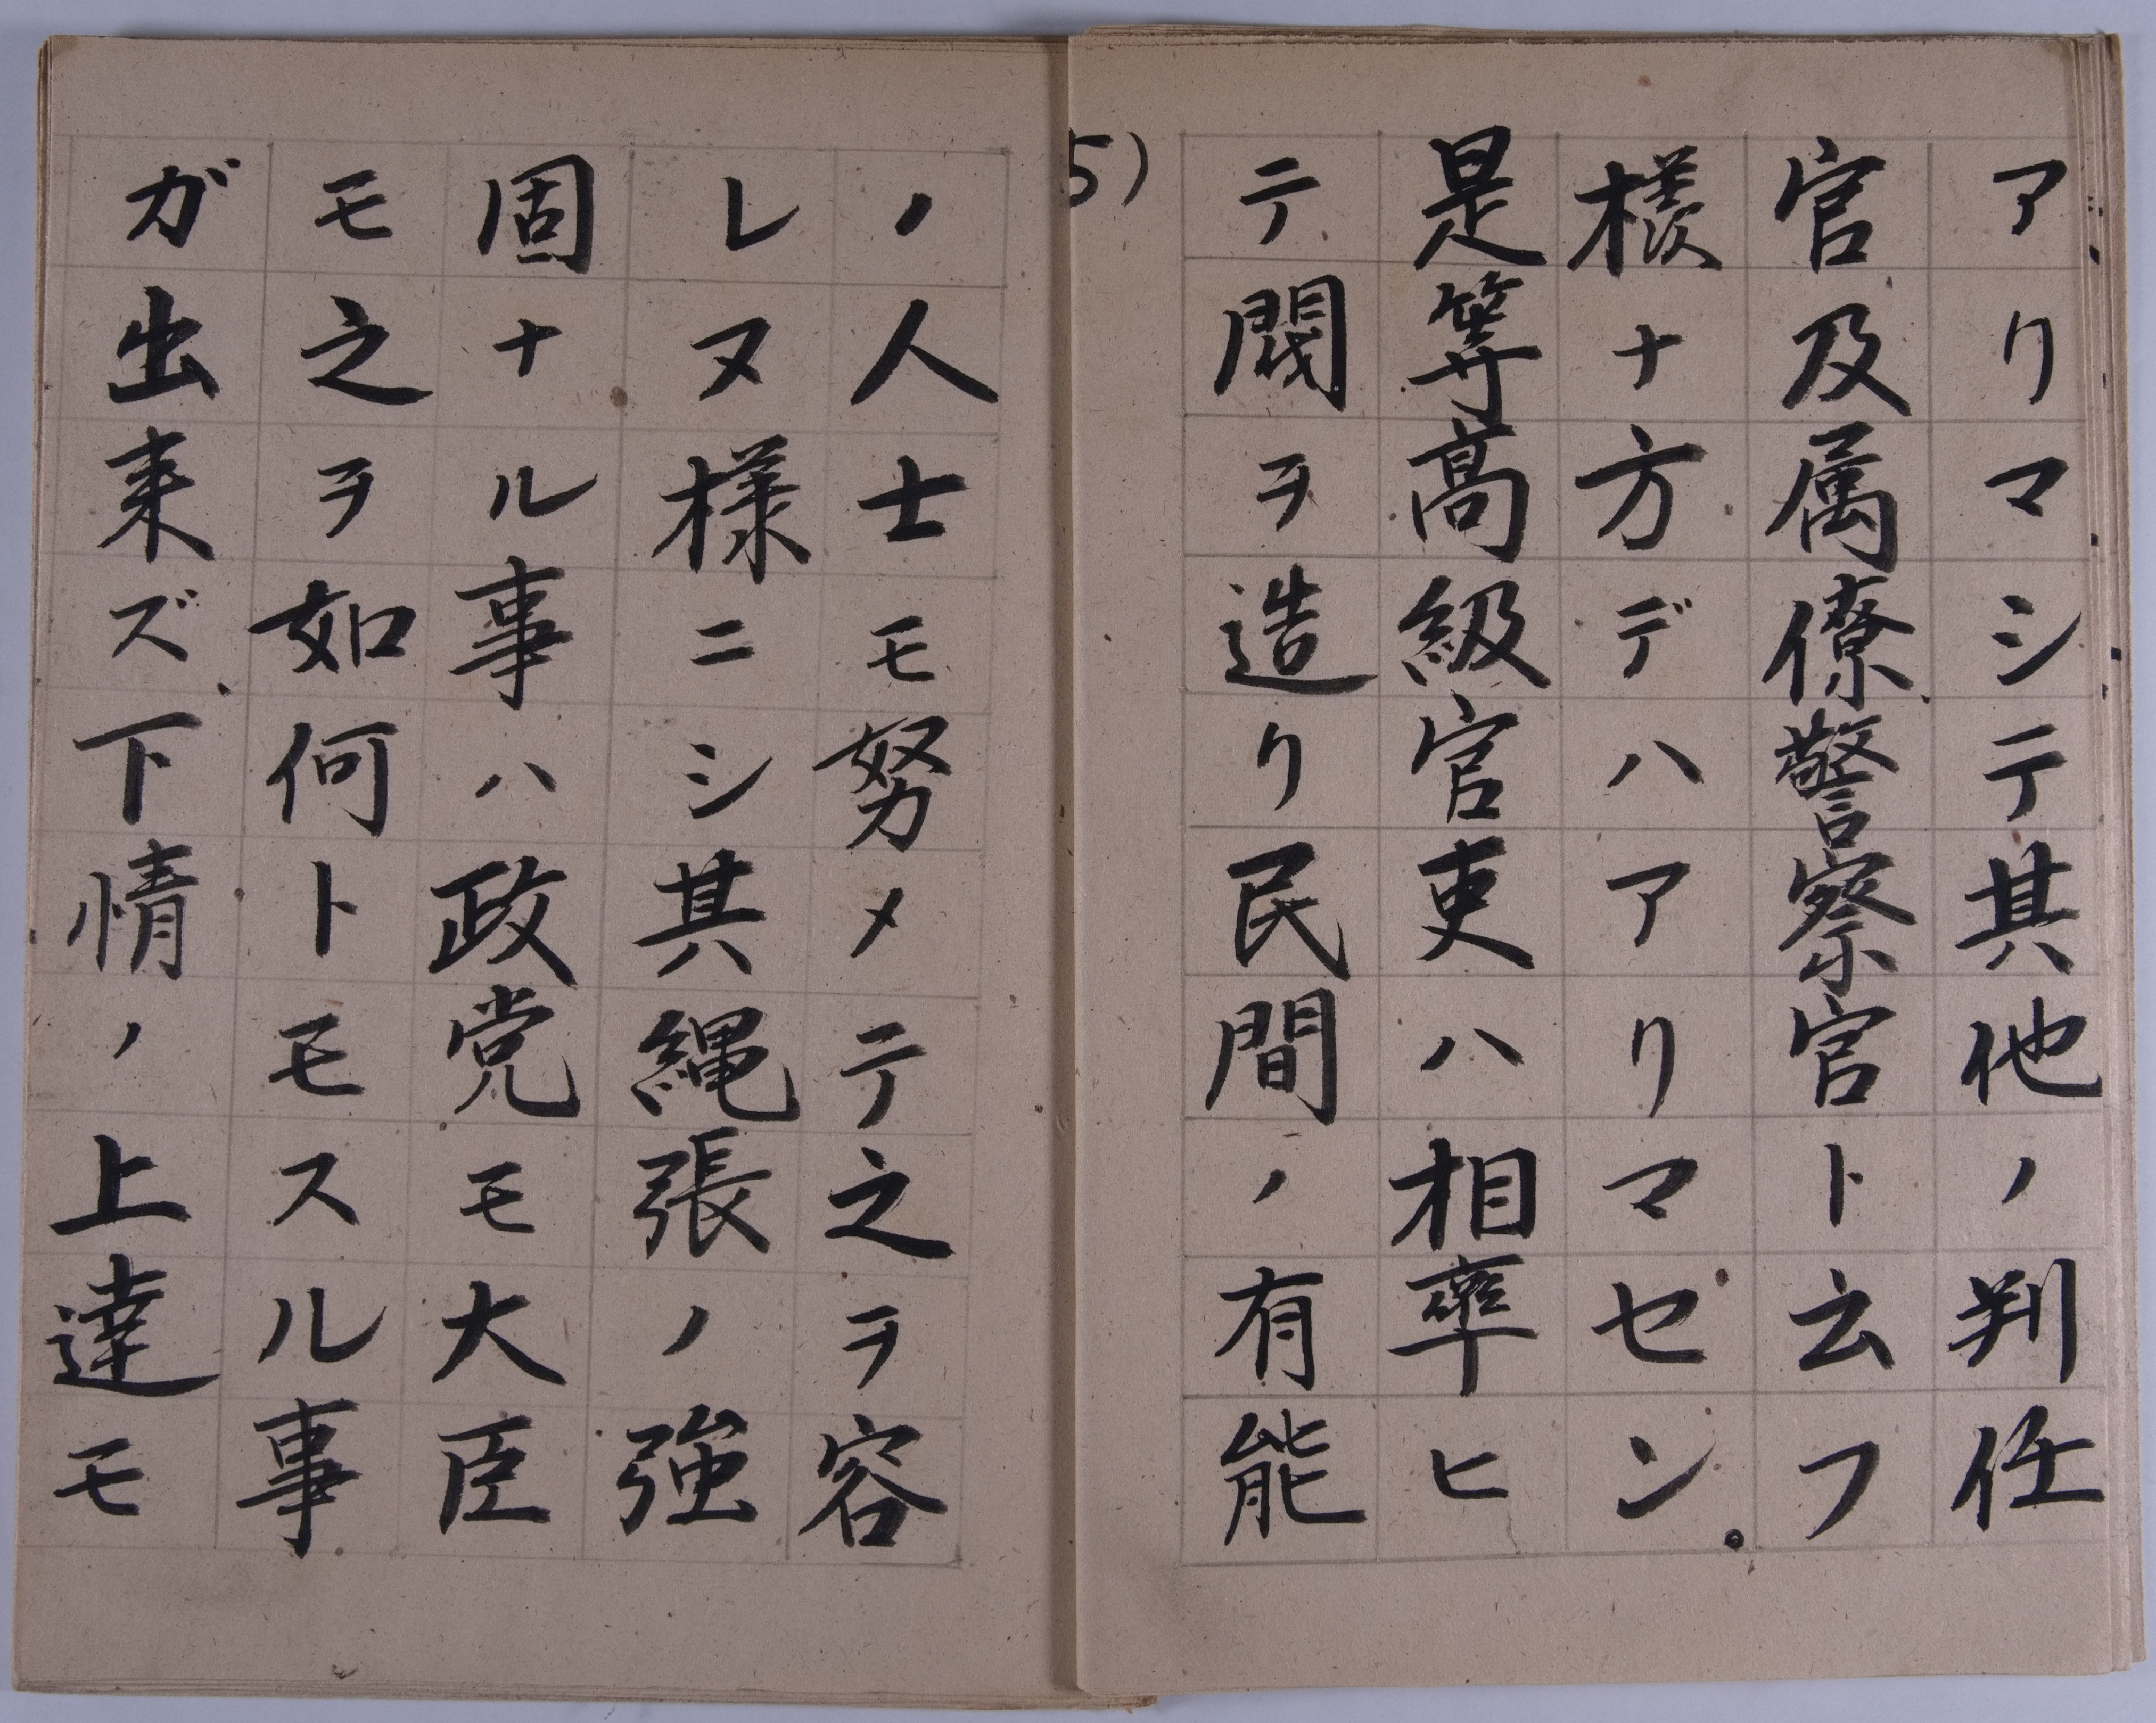 アリマシテ其他ノ判任
官及属僚警察官ト云フ
様ナ方デハアリマセン。
是等高級官吏ハ相率ヒ
テ閥ヲ造リ民間ノ有能
5)
ノ人士モ努メテ之ヲ容
レヌ様ニシ其縄張ノ強
固ナル事ハ政党モ大臣
モ之ヲ如何トモスル事
ガ出来ズ下情ノ上達モ